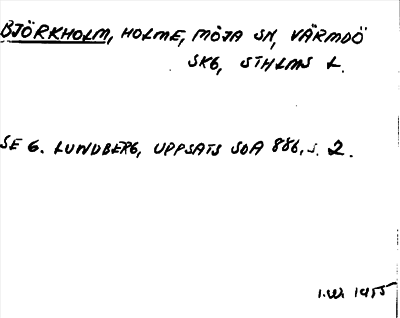 BJÖRKHOLM, HOLME, MÖJA SN, VÄRMDÖ
SKG, STHLMS L.
SE G. LUNDBERG, UPPSATS SOA 886, S. 2.
I.W. 1955